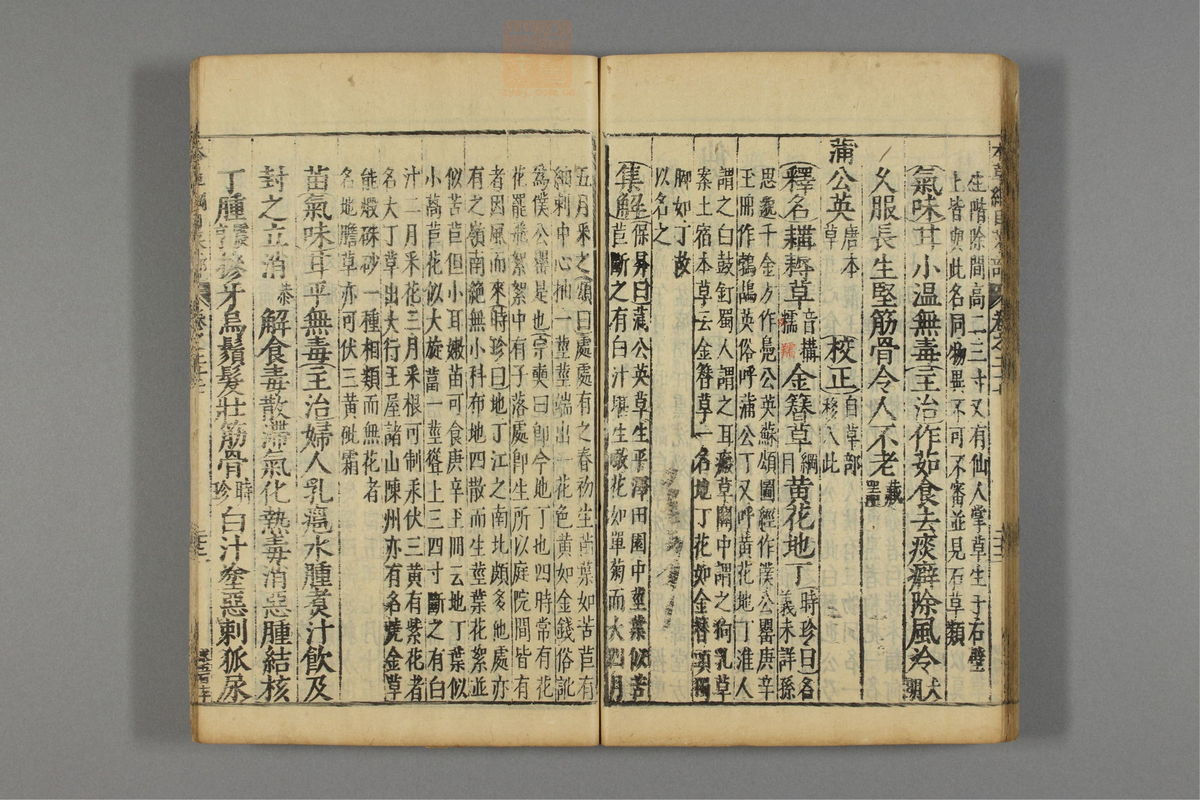 生階除間高二三寸又有仙人掌草生于石壁
上皆與此名同物異不可不審並見石草類
氣味甘小溫無毒主治作茹食去痰癖除風冷大明
久服長生堅筋骨令人不老藏器
蒲公英唐本草校正自草部移入此
釋名耩耨草音構糯金簪草綱目黃花地丁時珍曰名義未詳孫
思邈千金方作鳧公英蘇頌圖經作僕公罌庚辛
玉冊作鵓鴣英俗呼蒲公丁又呼黃花地丁淮人
謂之白鼓釘蜀人謂之耳瘢草關中謂之狗乳草
案土宿本草云金簪草一名地丁花如金簪頭獨
脚如丁故
以名之
集解保昇曰蒲公英草生平澤田園中莖葉似苦
苣斷之有白汁堪生噉花如單菊而大四月
五月采之頌曰處處有之春初生苗葉如苦苣有
細刺中心抽一莖莖端出一花色黃如金錢俗訛
為僕公罌是也宗奭曰卽今地丁也四時常有花
花罷飛絮絮中有子落處卽生所以庭院間皆有
者因風而來時珍曰地丁江之南北頗多他處亦
有之嶺南絕無小科布地四散而生莖葉花絮並
似苦苣但小耳嫩苗可食庚辛玉冊云地丁葉似
小萵苣花似大旋葍一莖聳上三四寸斷之有白
汁二月采花三月采根可制汞伏三黃有紫花者
名大丁草出大行王屋諸山陳州亦有名燒金草
能煅硃砂一種相類而無花者
名地膽草亦可伏三黃砒霜
苗氣味甘平無毒主治婦人乳癰水腫煮汁飲及
封之立消恭解食毒散滯氣化熱毒消惡腫結核
丁腫震亨摻牙烏鬚髮壯筋骨時珍白汁塗惡刺狐尿